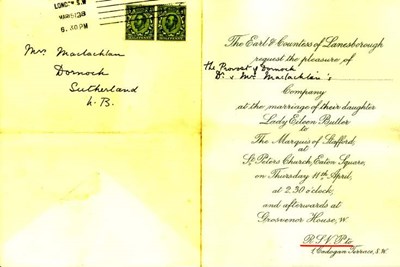 LONDON S.W.
6.30PM
Mrs. Maclachlan
Dornoch
Sutherland
N. B.
The Earl & Countess of Lanesborough
request the pleasure of
the Provost of Dornoch
Dr. & Mrs. Maclachlan's
Company
at the marriage of their daughter
Lady Eileen Butler
to
The Marquis of Stafford,
at
St. Peters Church, Eaton Square,
on Thursday 11th April,
at 2.30 o'clock,
and afterwards at
Grosvenor House, W.
R.S.V.P. to
1, Cadogan Terrace, S.W.